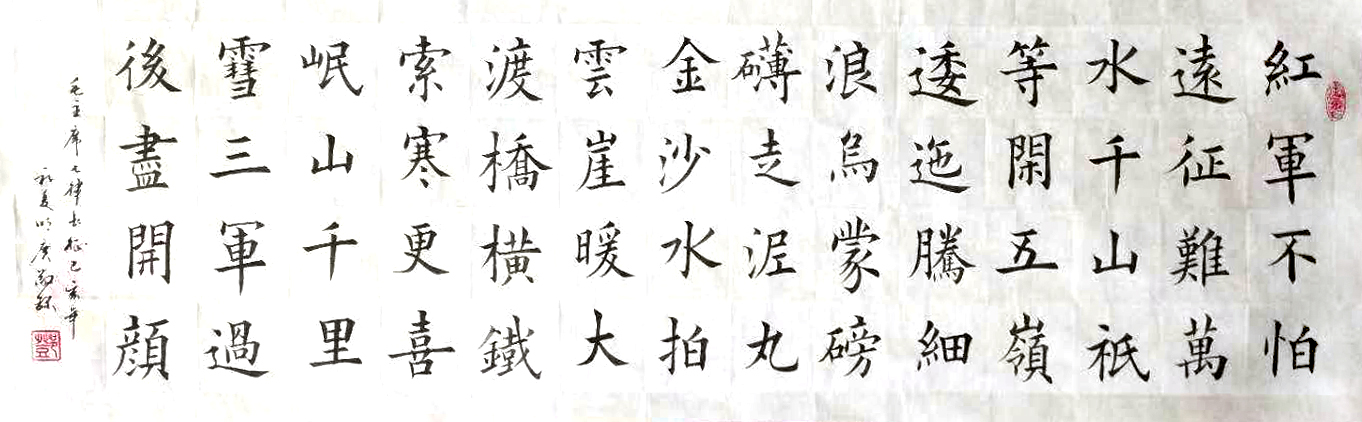 紅軍不怕
遠征難萬
水千山祇
等閑五嶺
逶迤騰細
浪烏蒙磅
礴走泥丸
金沙水拍
雲崖暖大
渡橋橫鐵
索寒更喜
岷山千里
雪三軍過
後盡開顏
毛主席七律長征己亥年
初夏